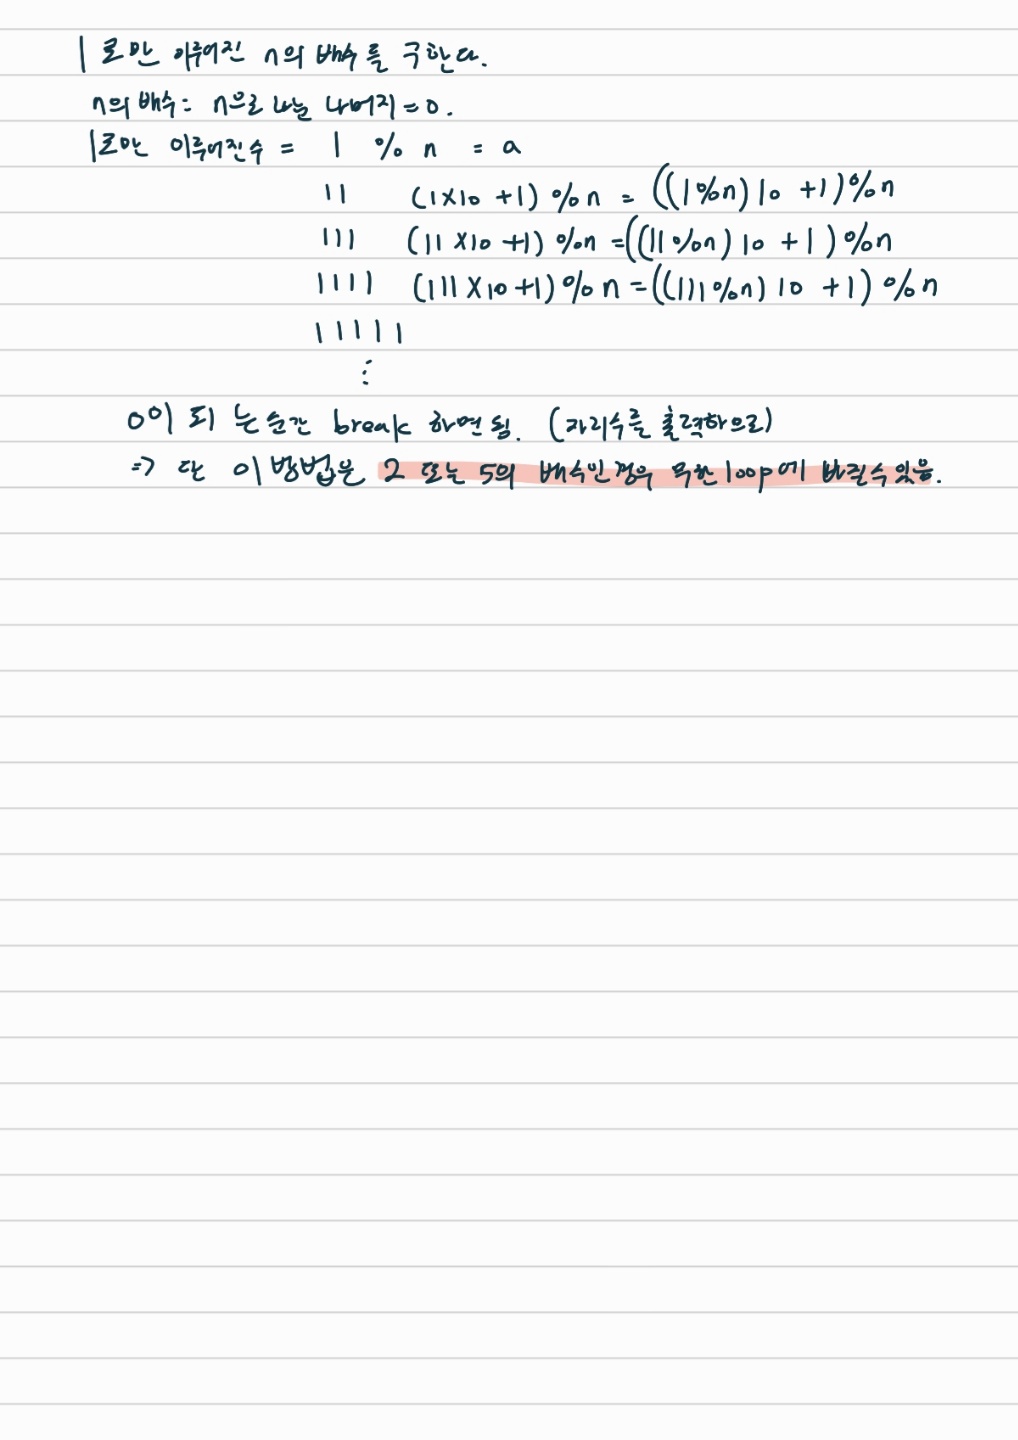 1로만 이루어진 n의 배수를 구한다.
n의 배수: n으로 나눈 나머지=0.
1로만 이루어진수 = 1 % n = a
11 (1×10 +1) % n = ((1%n) 10 +1)%n
111 (11 ×10 +1) %n =((11%n) 10 + 1) %n
1111 (111 ×10 +1) % n =((111%n) 10 +1) % n
11111
⋮
0이 되는순간 break 하면됨. (자리수를 출력하므로)
=> 단 이 방법은 2 또는 5의 배수인 경우 무한 loop에 빠질수 있음.